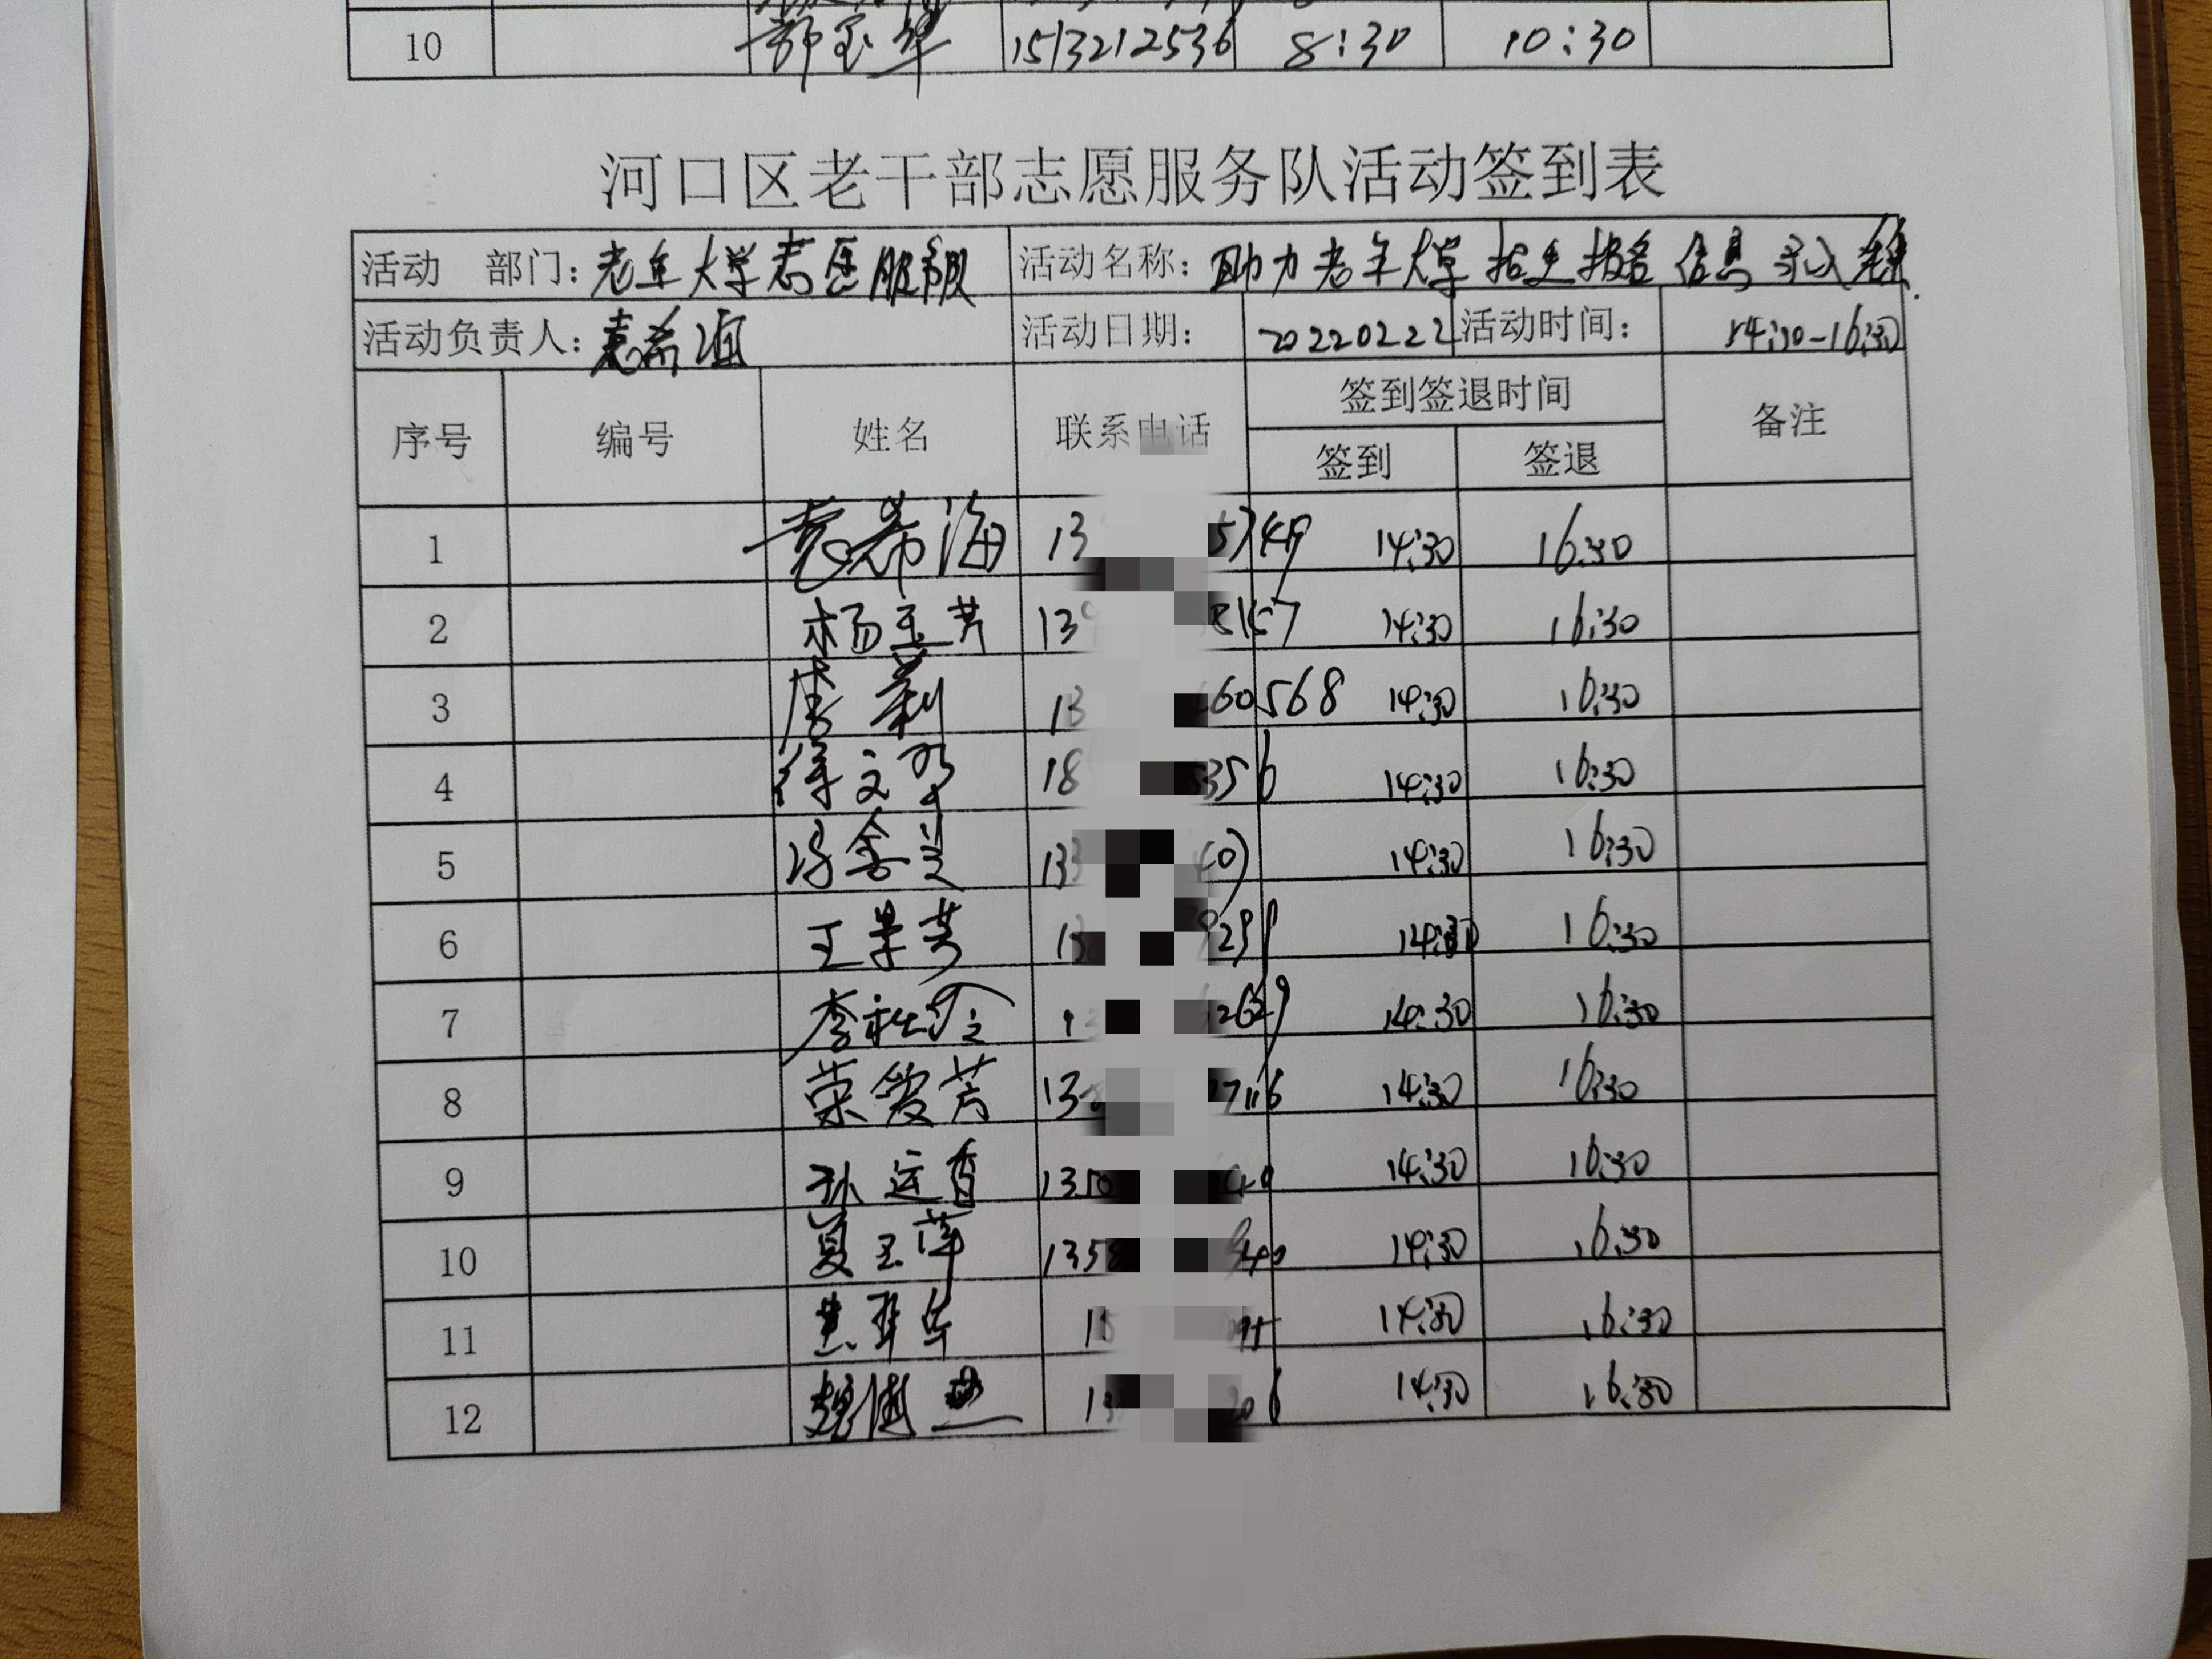 10 郭玉华 1513212536 8:30 10:30
河口区老干部志愿服务队活动签到表
活动 部门: 老年大学志愿服务队 活动名称: 助力老年大学招生报名信息录入
活动负责人: 袁希海 活动日期: 20220222 活动时间: 14:30-16:30
序号 编号 姓名 联系电话 签到签退时间 备注
签到 签退
1 袁希海 13 5749 14:30 16:30
2 杨玉芳 139 8157 14:30 16:30
3 唐莉 13 60568 14:30 16:30
4 徐文 18 5356 14:30 16:30
5 冯金兰 133 407 14:30 16:30
6 王景芳 13 9299 14:30 16:30
7 李 1 2629 14:30 16:30
8 荣爱芳 13 7116 14:30 16:30
9 孙运香 1350 40 14:30 16:30
10 夏玉萍 1358 940 14:30 16:30
11 15 95 14:30 16:30
12 魏 13 206 14:30 16:30